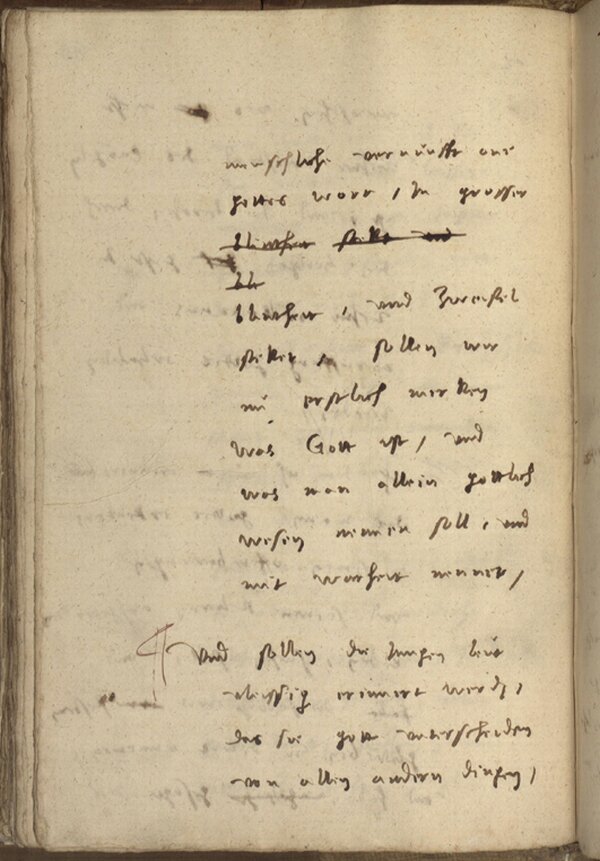 menschliche vernunfft one
gottes wort / In grosser
blintheit stekt und
bli
blintheit, und Zweifel
steket, sollen wir
nu erstlich merken
was Gott ist, und
was man allein gottlich
wesen nennen soll, und
mit warheit nennet /
Und sollen die iungen leut
vleissig erinnert werdn,
das sie gott unterscheiden
von allen andern dingen /